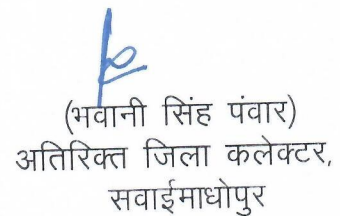 (भवानी सिंह पंवार)
अतिरिक्त जिला कलेक्टर,
सवाईमाधोपुर